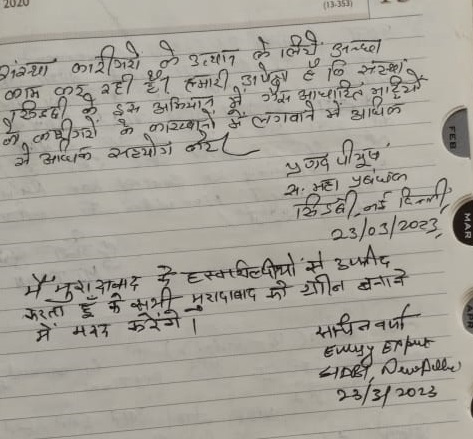 2020
(13-353)
संस्था कारीगरो के उत्थान के लिये अच्छा
काम कर रही है। हमारी अपेक्षा है कि संस्था
सिडबी के इस अभियान में गैस आधारित भट्टियों
को कारीगरों के कारखानों में लगवाने में अधिक
से अधिक सहयोग करे
FEB
प्रणव पीयूष
स. महा प्रबंधक
सिडबी, नई दिल्ली,
23/03/2023,
MAR
मैं मुरादाबाद के हस्तशिल्पीयों से उम्मीद
करता हूँ के सभी मुरादाबाद को ग्रीन बनाने
में मदद करेंगे।
वर्मा
Energy Expert
SIDBI, New Delhi
23/3/2023